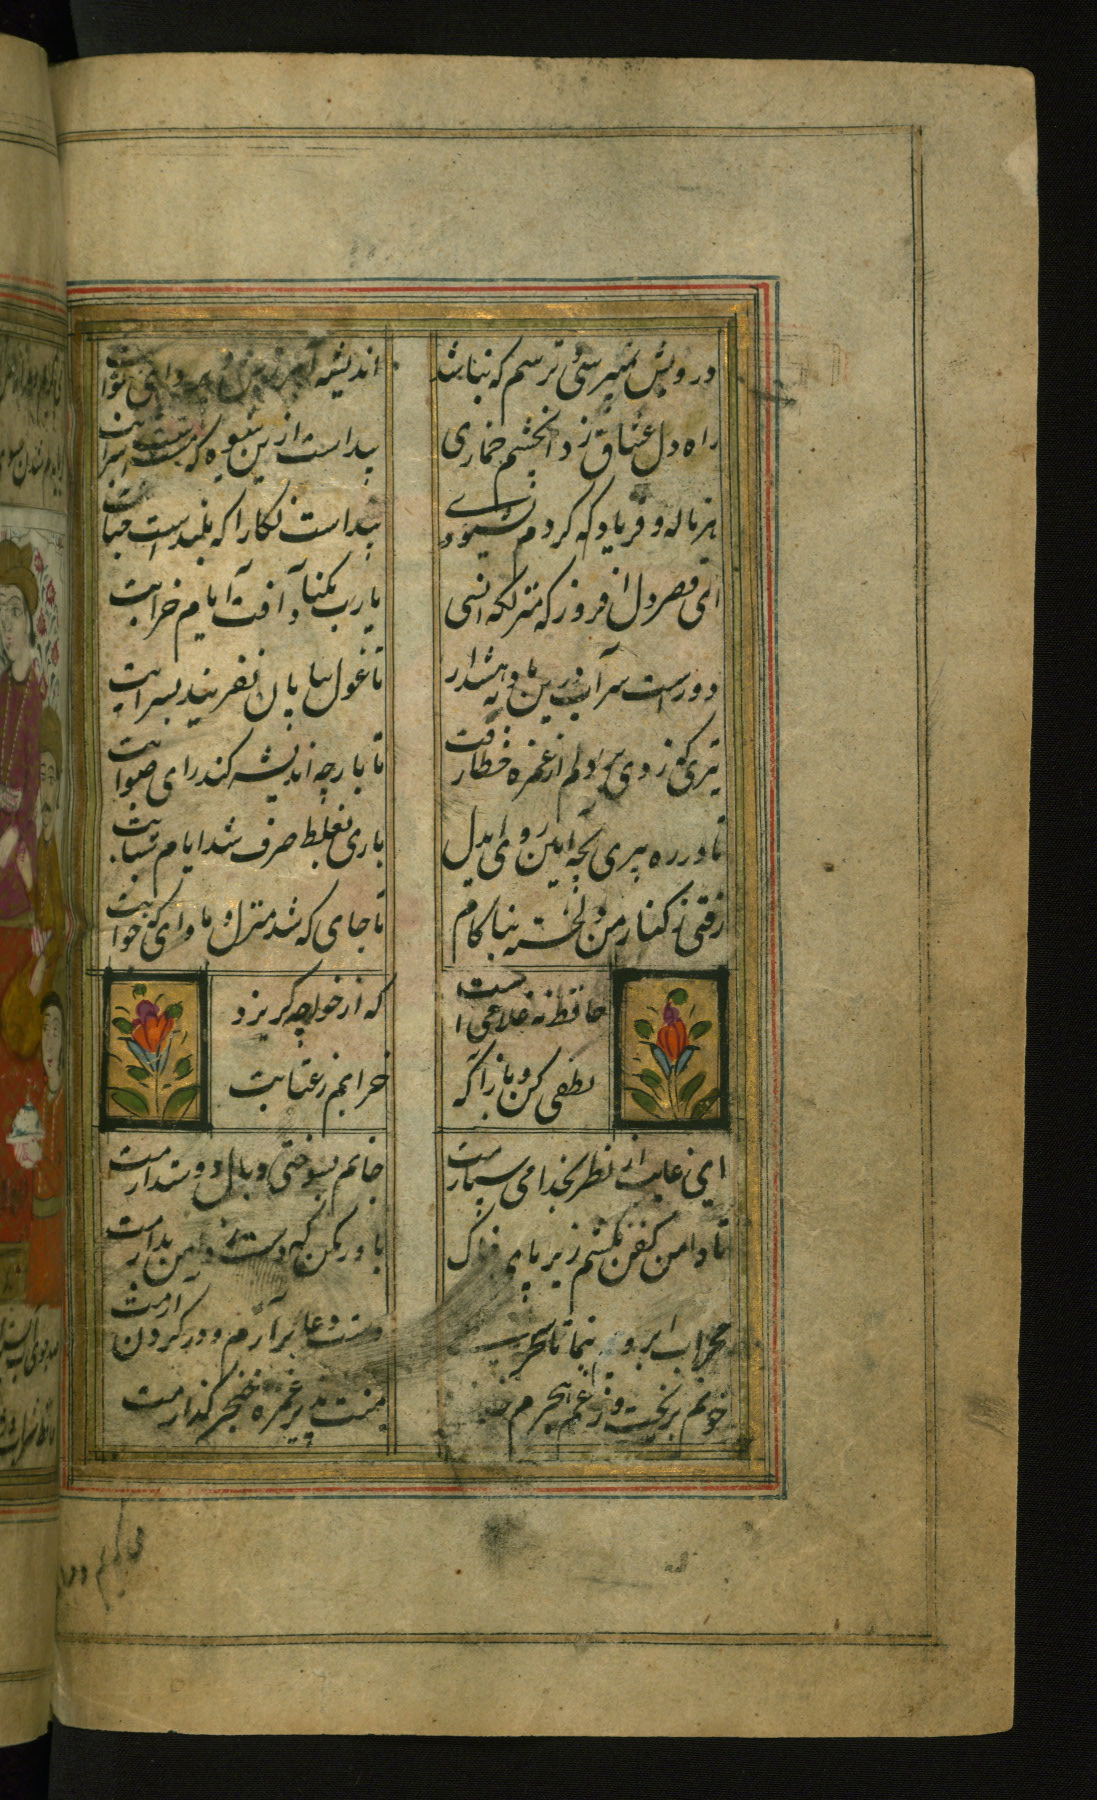 درویش نمیپرسی و ترسم که نباشد اندیشه آمرزش و پروای ثوابت
راه دل عشاق زد آنچشم خماری پیداست ازین شیوه که مست است شرابت
هر ناله و فریاد که کردم نشنودی پیداست نگارا که بلند است جنابت
ای قصر دل افروز که منزلگه انسی یارب مکناد آفت ایام خرابت
دورست سر آب درین بادیه هشدار تا غول بیابان نفریبد بسرابت
تیری که زدی بر دلم از غمزه خطا رفت تا باز چه اندیشه کند رای صوابت
تا در ره پیری بچه آیین روی ای دل باری بغلط صرف شد ایام شبابت
رفتی ز کنار من دلخسته بناکام تا جای که شد منزل و ماوای که خوابت
حافظ نه غلامی است که از خواجه گریزد
لطفی کن و باز آ که خرابم ز عتابت
ای غایب از نظر بخدا می سپارمت جانم بسوختی و بدل دوستدارمت
تا دامن کفن نکشم زیر پای خاک باور مکن که دست ز دامن بدارمت
محراب ابرویت بنما تا سحر دست دعا برآرم و در گردن آرمت
خونم بریخت و ز غم هجرم منت پذیر غمزه خنجر گذارمت